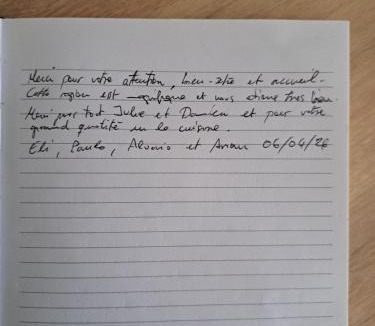 Merci pour votre attention, bien-être et accueil.
Cette region est magnifique et nous étions très bien.
Merci pour tout Julie et Damien et pour votre
grand qualité en la cuisine.
Eli, Paulo, Alvaro et 06/04/26